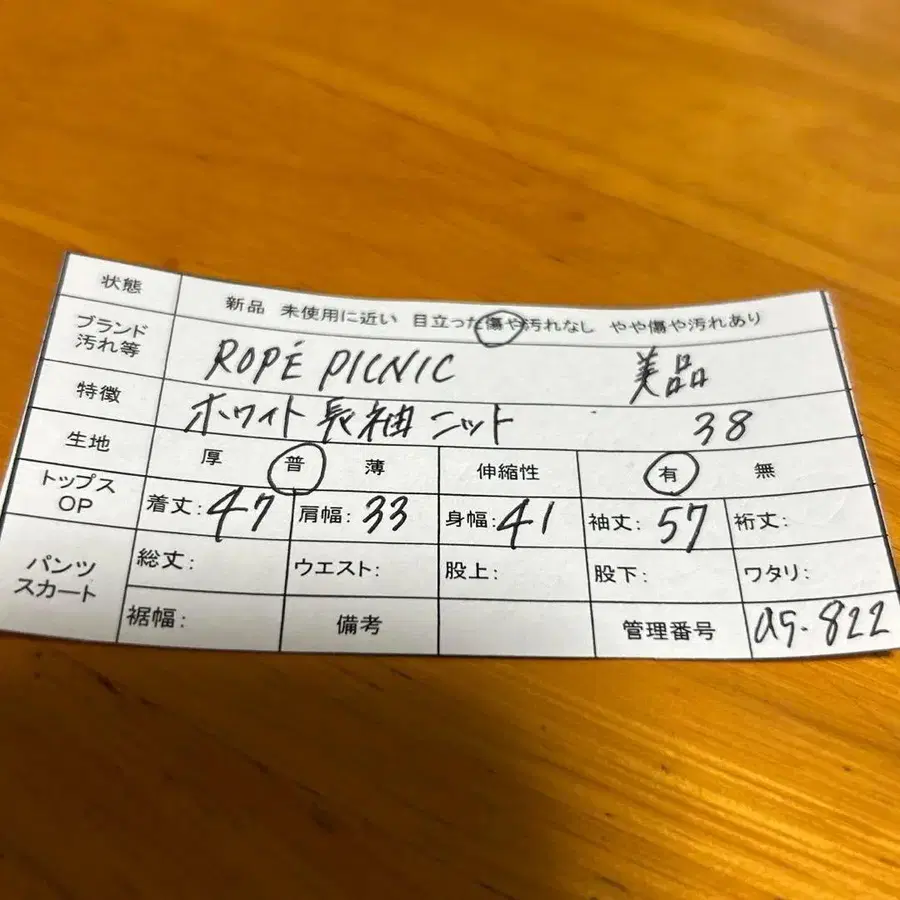 状態 新品 未使用に近い 目立った傷や汚れなし やや傷や汚れあり
ブランド 汚れ等 ROPÉ PICNIC 美品
特徴 ホワイト 長袖 ニット 38
生地 厚 普 薄 伸縮性 有 無
トップス OP 着丈:47 肩幅:33 身幅:41 袖丈:57 裄丈:
パンツ スカート 総丈: ウエスト: 股上: 股下: ワタリ:
裾幅: 備考 管理番号 a5-822